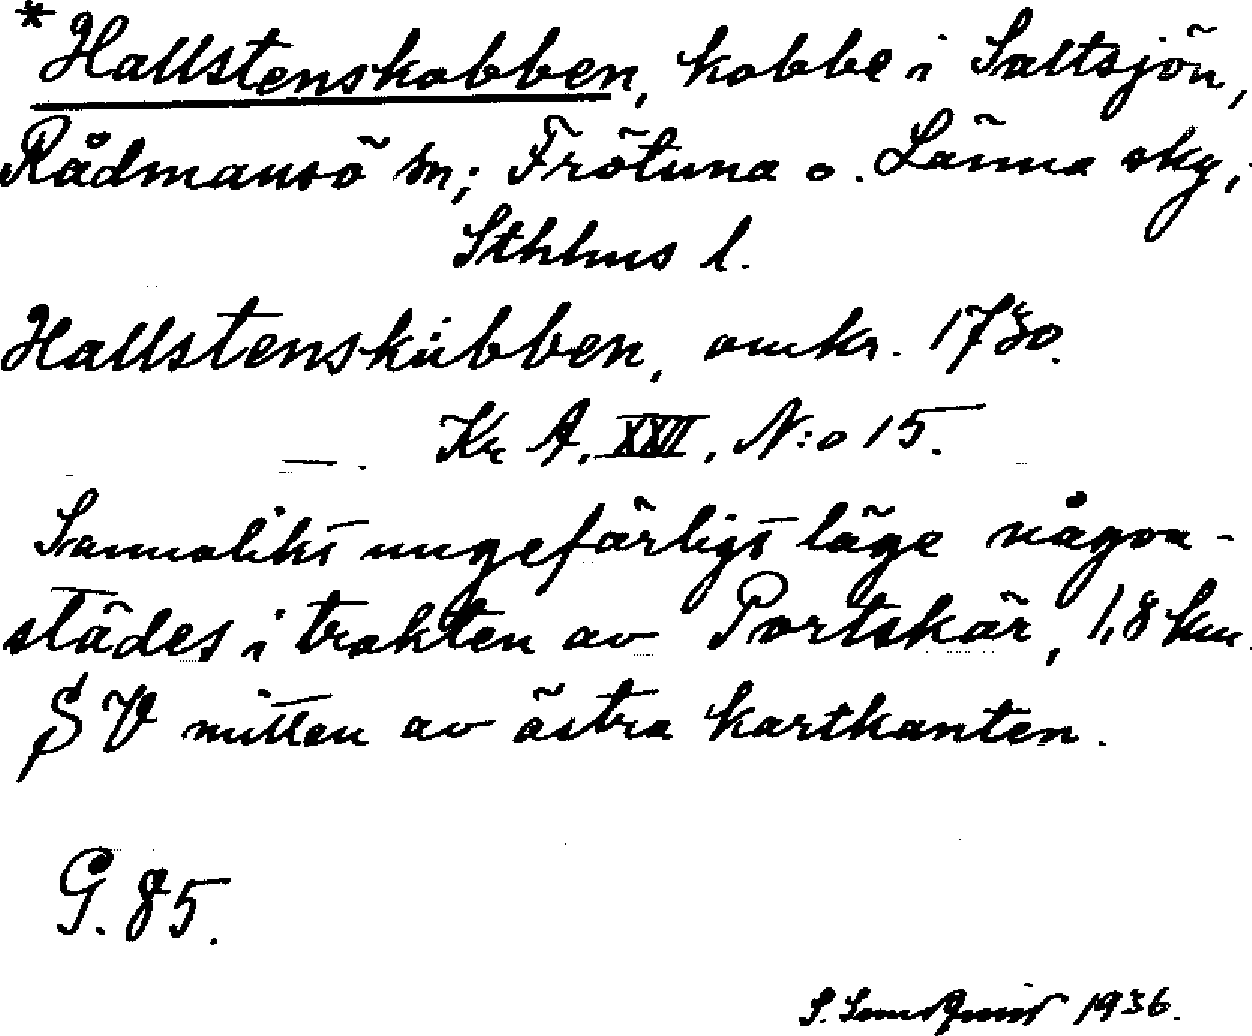 *Hallstenskobben, kobbe i Saltsjön,
Rådmansö sn; Frötuna o. Länna skg;
Sthlms l.
Hallstenskübben, omkr. 1730.
—. Kr A. XXII, N:o 15.
Sannolikt ungefärligt läge någon-
städes i trakten av Portskär, 1,8 km
SV mitten av östra kartkanten.
G. 85.
S. 1936.